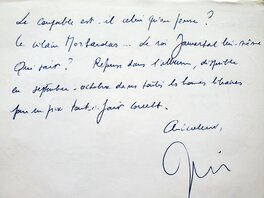 Le coupable est-il celui qu'on pense ?
Le vilain Mortadas... le roi lui-même
Qui sait ? Réponse dans l'album, disponible
en septembre-octobre dans toutes les bonnes librairies
pour un prix tout à fait correct.
Amicalement,